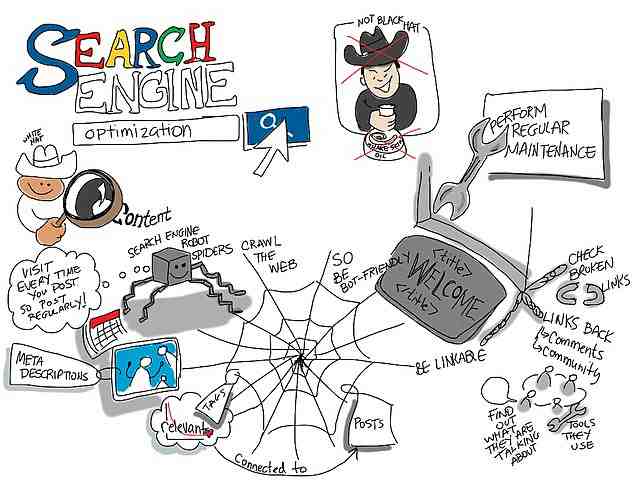 SEARCH
ENGINE
optimization
NOT BLACK HAT
SNAKE
OIL
PERFORM
REGULAR
MAINTENANCE
WHITE
HAT
Content
SEARCH ENGINE
ROBOT
SPIDERS
CRAWL
THE
WEB
SO
BE
BOT-FRIENDLY!
<title>
WELCOME
<title>
CHECK
BROKEN
LINKS
VISIT
EVERY TIME
YOU POST
SO POST
REGULARLY!
LINKS BACK
Comments
Community
BE LINKABLE
META
DESCRIPTIONS
TAGS
relevant
POSTS
Connected to
FIND
OUT
WHAT
THEY ARE
TALKING
ABOUT
TOOLS
THEY
USE